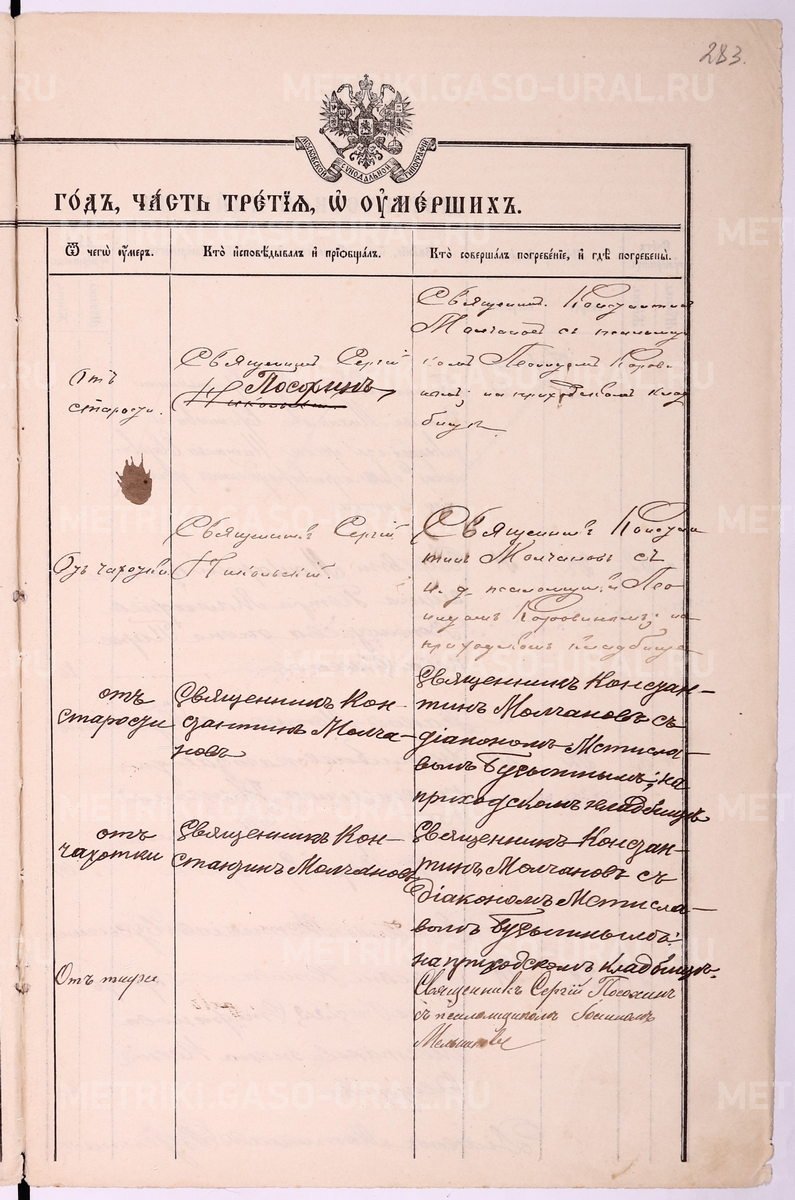 283.
МОСКОВСКОЙ СѴНОДАЛЬНОЙ ТИПОГРАФІИ
ГО́ДЪ, ЧА́СТЬ ТРЕ́ТІѦ, Ѽ ОУ҆МЕ́РШИХЪ.
Ѿ чегѡ̀ оу҆́меръ.
Кто̀ и҆сповѣ́дывалъ и҆ прїѡбща́лъ.
Кто̀ соверша́лъ погребе́нїе, и҆ гдѣ̀ погребены̀.
Отъ
старости.
Священникъ Сергій
Посохинъ
Никольскій
Священник. Константин
Молчановъ с псаломщи
комъ Леонидомъ Корови
нымъ; на приходскомъ клад
бищѣ
Отъ чахотки
Священникъ Сергій
Никольскій.
Священникъ Констан
тинъ Молчановъ съ
и. д. псаломщика Лео
нидомъ Коровинымъ; на
приходскомъ кладбищѣ
отъ
старости
Священникъ Кон-
стантинъ Молча-
новъ
Священникъ Констан-
тинъ Молчановъ съ
діакономъ Мстисла-
вомъ; на
приходскомъ кладбищѣ
отъ
чахотки
Священникъ Кон-
стантинъ Молчановъ
Священникъ Констан-
тинъ Молчановъ съ
діакономъ Мстисла-
вомъ
на приходскомъ кладбищѣ.
Отъ
Священникъ Сергій Посохинъ
съ псаломщикомъ
METRIKI.GASO-URAL.RU